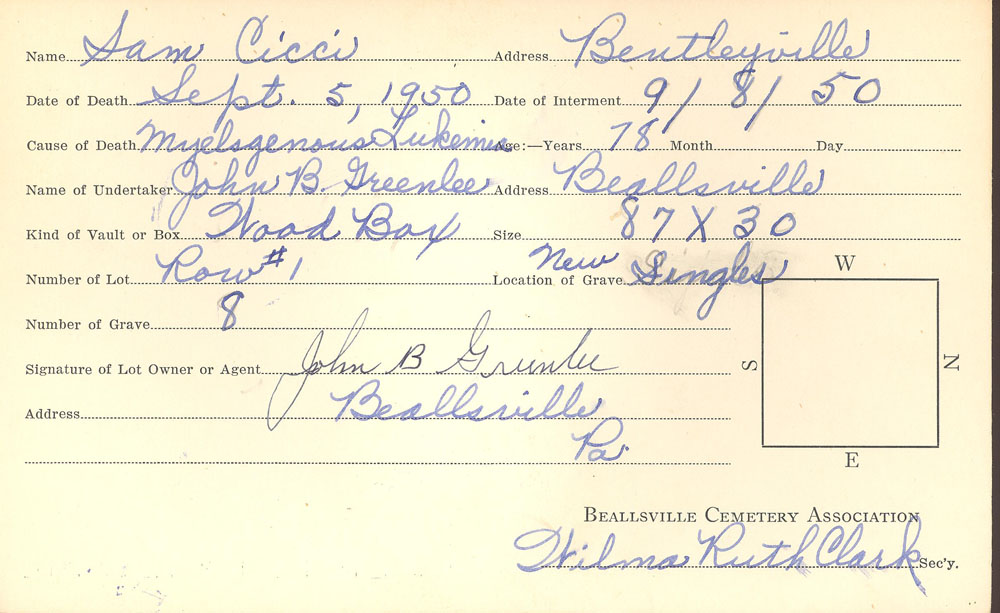 Name Sam Cicci Address Bentleyville
Date of Death Sept. 5, 1950 Date of Interment 9/ 8/ 50
Cause of Death Myelsgenous Lukemia Age:—Years 78 Month Day
Name of Undertaker John B. Greenlee Address Beallsville
Kind of Vault or Box Wood Box Size 87 X 30
Number of Lot Row #1 Location of Grave New Singles
W
Number of Grave 8
Signature of Lot Owner or Agent John B Greenlee
S N
Address Beallsville
Pa.
E
BEALLSVILLE CEMETERY ASSOCIATION
Wilma Ruth Clark Sec'y.